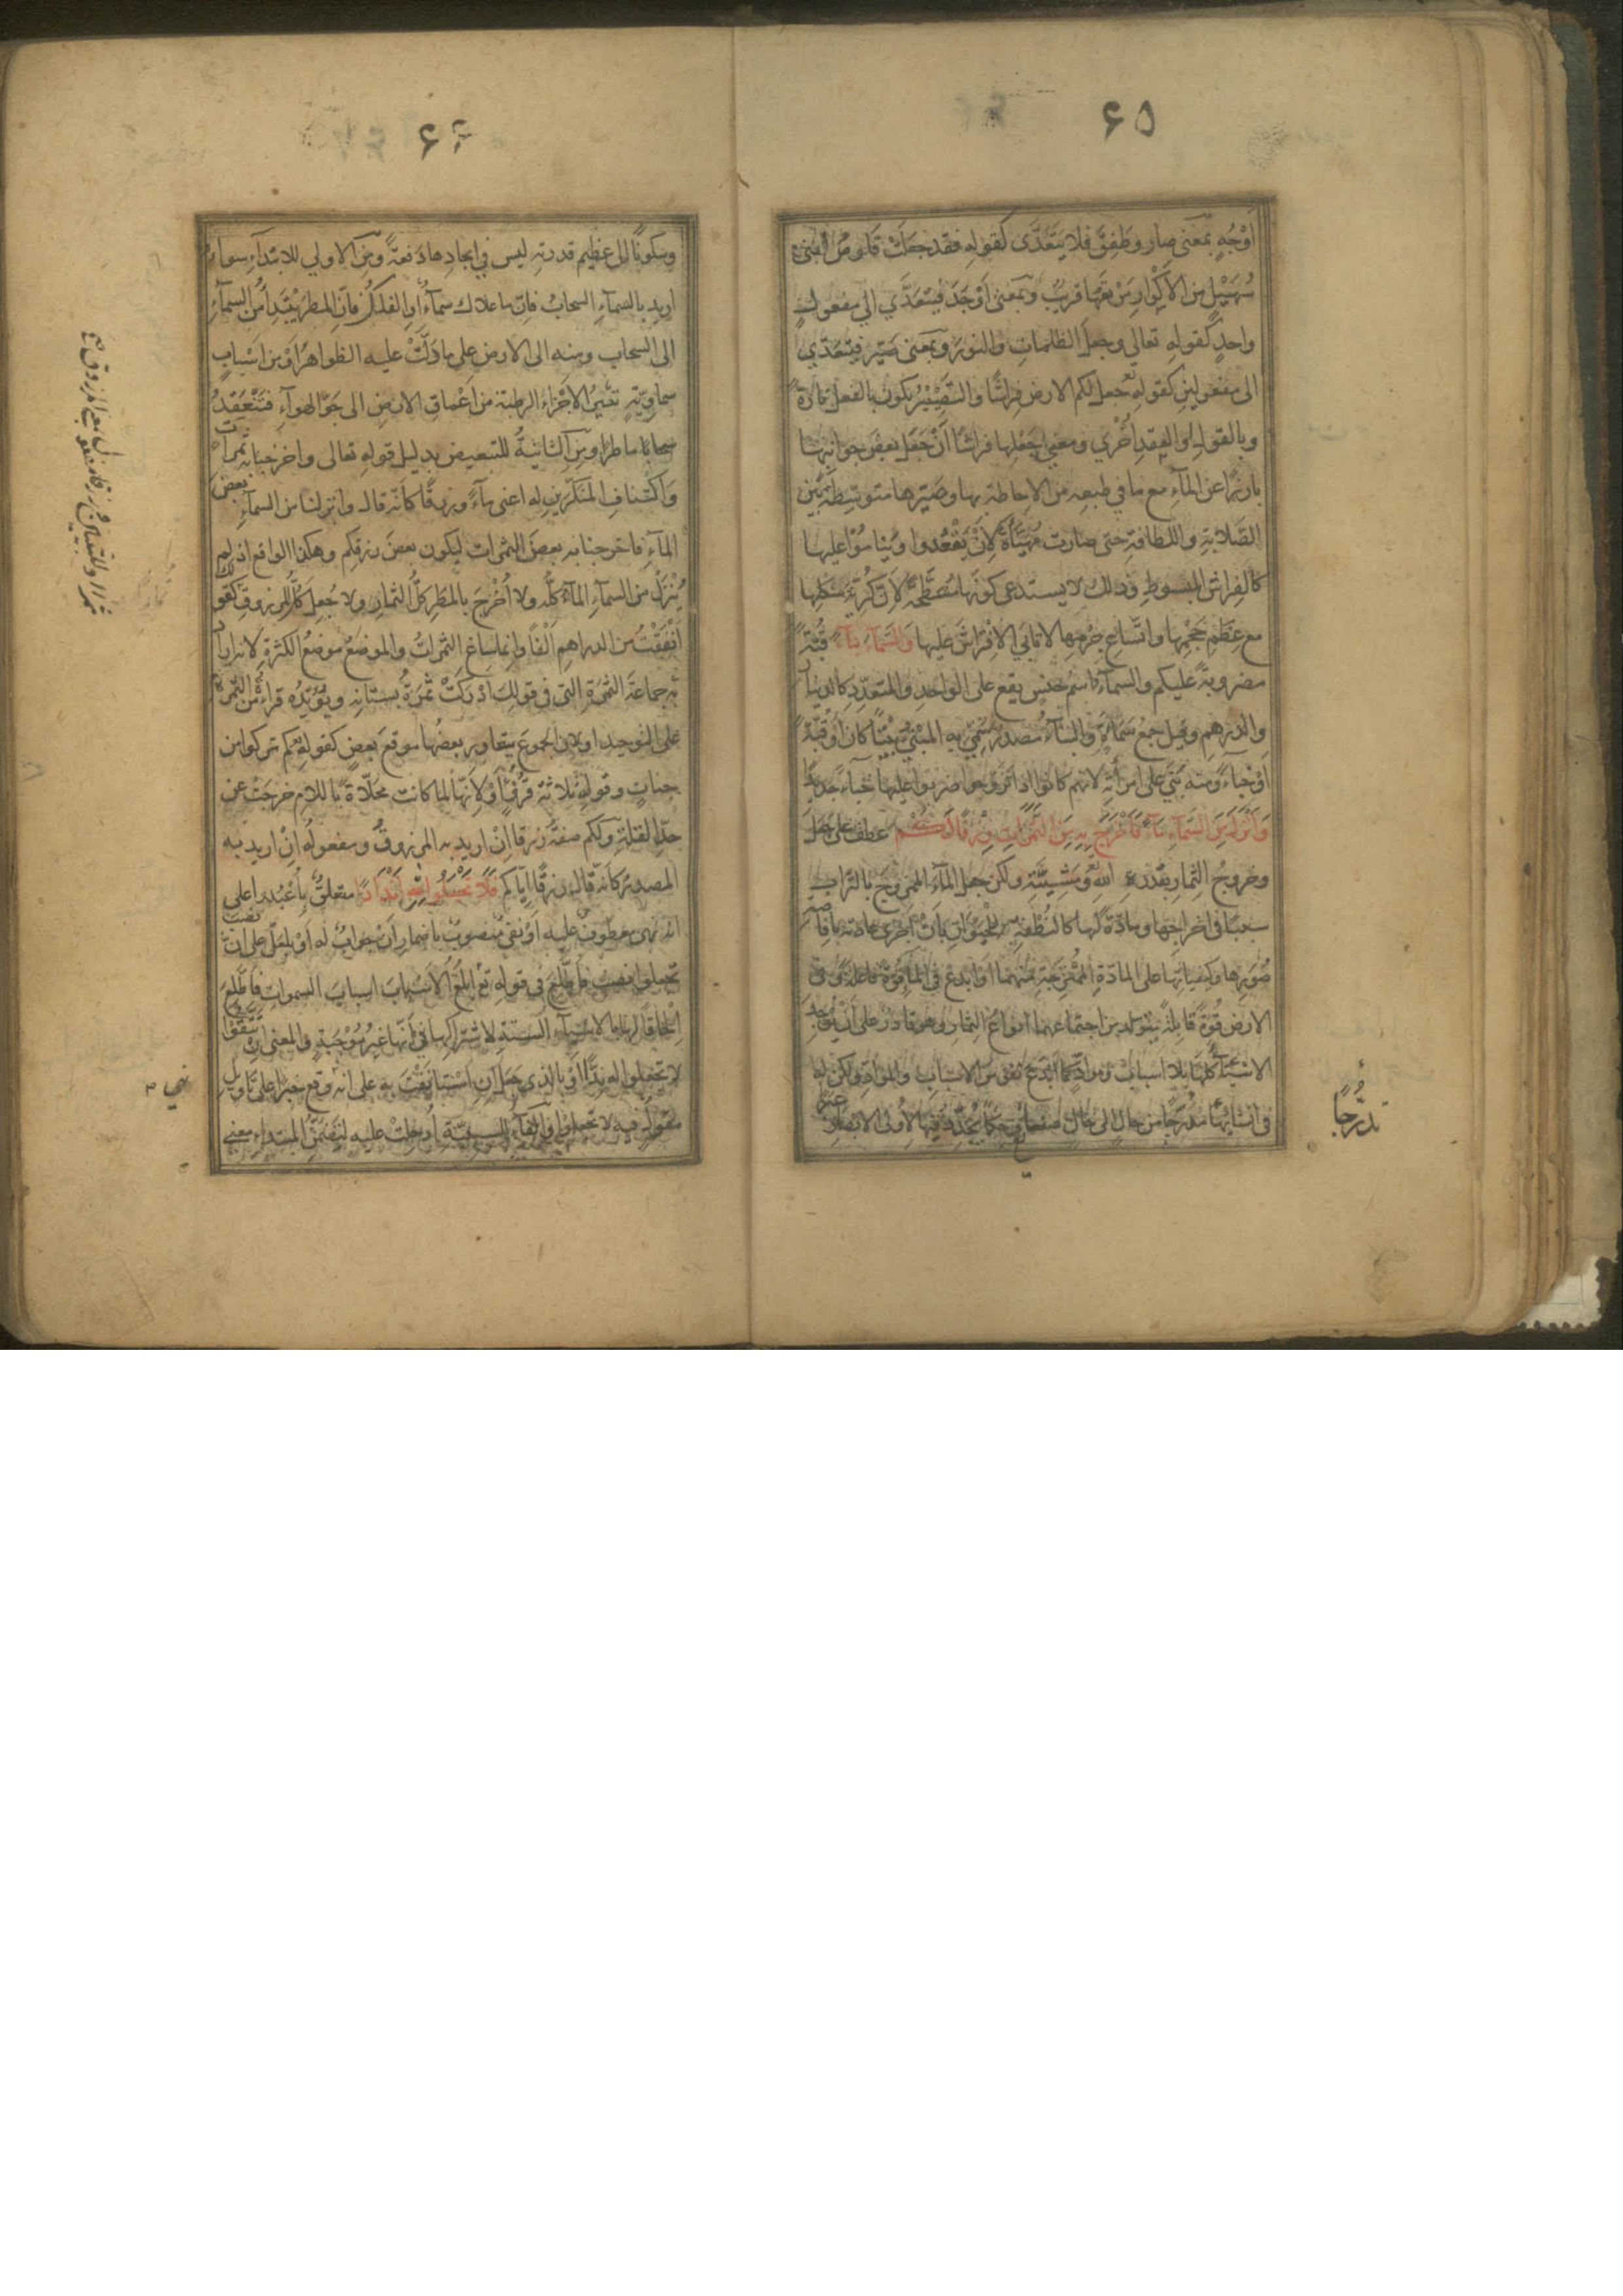 ۶۵
اَوْجُهٍ بمَعنى صار وطَفِقَ فلا يَتَعَدَّى كقولهِ فقد جعلَتْ قَلوصُ ابنَىْ
سُهَيْلٍ من الاَكْوارِ مَرْتعُها قريبُ وبمعنى اَوْجَدَ فيتعَدَّي الي مفعولٍ
واحدٍ كقولهِ تعالي وجعلَ الظلماتِ والنورَ وبمعنى صَيَّر فيتعَدّي
الى مفعولينِ كقولهِ تع جعل لكم الارض فِراشًا والتَّصْيِيْرُ يكون بالفعل تارةً
وبالقولِ او العقدِ اُخْري ومعني جَعْلِها فراشًا اَنْ جَعَل بعضَ جوانبِها
بارزًا عن المآءِ مع ما في طبعِه من الاحاطةِ بها وصَيّرها متوسِّطةً بَيْن
الصَّلابةِ واللطافةِ حتى صارت مُهَيَّأَةً لِاَنْ يَقْعُدوا ويناموُا عليها
كالفِراشِ المبسوطِ وذلك لا يستدعى كونَها مُسَطَّحةً لِاَنَّ كُرِيَّةَ شكلِها
مع عِظَمِ حَجْمِها واتّساعِ جِرْمِها لا تابَي الاِفْتِراشَ عليها وَالسَّمَآءَ بِنَآءً قُبّةً
مضروبةً عليكم والسمآءُ اسم جنسٍ يقع على الواحدِ والمتعدِّدِ كالدينارِ
والدرهمِ وقيل جمعُ سَمَآءَةٍ والبنآءُ مصدرٌ سُمّي به المبْنِيُّ بَيْتًا كان اَوْ قُبّةً
اَوْ خِبآءً ومنه بَنَي على امرأتِهِ لانهم كانوا اذا تزَوَّجوا ضربوا عليها خبآءً جديدًا
وَاَنْزَلَ مِنَ السَّمَآءِ مَآءً فَاَخْرَجَ بِهِ مِنَ الثَّمَرَاتِ رِزْقًا لَكُمْ عطف على جعل
وخروجُ الثمارِ بقدرةِ اللهِ تع ومَشِيَّتِهِ ولكن جعل المآءَ الممزوجَ بالترابِ
سببًا في اخراجِها ومادّةً لها كالنُّطْفةِ للحَيَوانِ بِاَنْ اَجْرَى عادتَه بافاضةِ
صُوَرِها وكيفيّاتِها على المادّةِ المُمْتزِجةِ منهما اَوْ ابْدَعَ في المآءِ قُوّةً فاعلةً وفي
الارض قُوّةً قابلةً يتولد من اجتماعِهما انواعُ الثمارِ وهو قادر على اَنْ يُوْجِدَ
الاشيآءَ كلَّها بلا اسبابٍ وموادَّ كما اَبْدَعَ نفوسَ الاسبابِ والموادِّ ولكن له
في انشائِها مُدَرِّجًا من حالٍ الى حالٍ صنعًا وحِكَمًا يُجَدِّد فيها لِاُولي الابصارِ عِبَرًا
تدَرُّجًا
۶۶
وسكونًا الى عظيم قدرتِهِ ليس في ايجادِها دَفعةً ومن الاولي للابتدآءِ سوآءٌ
اريد بالسمآءِ السحابُ فانّ ما علاك سمآءٌ اَوِ الفلكُ فانّ المطرَ يبْتَدِأُ من السمآءِ
الى السحاب ومنه الى الارضِ على ما دَلّتْ عليه الظواهرُ اَوْ من اَسْبابٍ
سماويّةٍ تُثيرُ الاَجْزاءَ الرطبةَ من اَعْماقِ الارضِ الى جَوِّ الهوآءِ فتَنْعَقِدُ
سحابًا ماطرًا ومن الثانيةُ للتبعيض بدليل قوله تعالى واخرجنا به ثمرات
وَاكْتنافِ المنكَّرَينِ له اعنى مآءً ورزقًا كاَنّه قال وانزلنا من السمآءِ بعضَ
المآءِ فاخرجنا به بعضَ الثمراتِ ليكون بعضَ رزقِكم وهكذا الواقع اذ لم
يُنْزَلْ من السمآءِ المآءُ كلُّه ولا اُخْرِجَ بالمطرِ كلُّ الثمارِ ولا جُعِلَ كلُّ المرزوقِ كقولك
اَنْفَقْتُ من الدراهمِ الفًا وانما ساغ الثمراتُ والموضعُ موضعُ الكثرةِ لانه اراد
به جماعةَ الثمرةِ التي في قولِك اَدْرَكَتْ ثمرَةُ بستانِه ويُؤيّدُه قراءةُ من الثمرة
على التوحيدِ اولان الجموعَ يتعاور بعضُها موقعَ بعضٍ كقولهِ تع كم تركوا من
جناتٍ وقولهِ ثلاثةَ قُرُوْءٍ اَوْ لِاَنّها لما كانت محلّاةً باللامِ خرجَتْ عن
حدِّ القلةِ ولكم صفةُ رزقا اِنْ اريد به المرزوقُ ومفعولُه اِنْ اريد به
المصدرُ كانّه قال رزقًا اِيّاكم فَلَا تَجْعَلُوا لِلّٰهِ اَنْدَادًا متعلقٌ بِاُعْبُدوا على
انه نهي معطوفٌ عليه اَوْ نفي منصوبٌ باضمارِ اَنْ جوابٌ له اَوْ بلعلّ على انّ نصبَ
تجعلوا نصبُ فَاَطَّلِعَ في قولهِ تع لعلي ابلُغُ الاَسْبابَ اسبابَ السمواتِ فاَطَّلِعَ
اِلْحاقًا لها بالاشيآءِ الستةِ لاشتراكِها في اَنّها غيرُ مُوْجَبةٍ والمعنى اِنْ تتّقوا
لا تجعلوا له نِدًّا اَوْ بالذي جَعَل اَنِ اسْتَأنَفْتَ به على انه وقع خبرا على تاويلِ
مقولٍ فيه لا تجعلوا والفآءُ للسببيّةِ اُدخِلتْ عليه لتضَمُّنِ المبتدإِ معنى
نهي